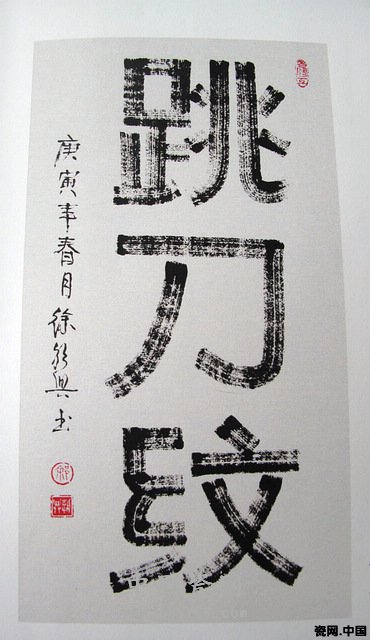 跳刀纹
庚寅年春月徐朝兴书
瓷网.中国